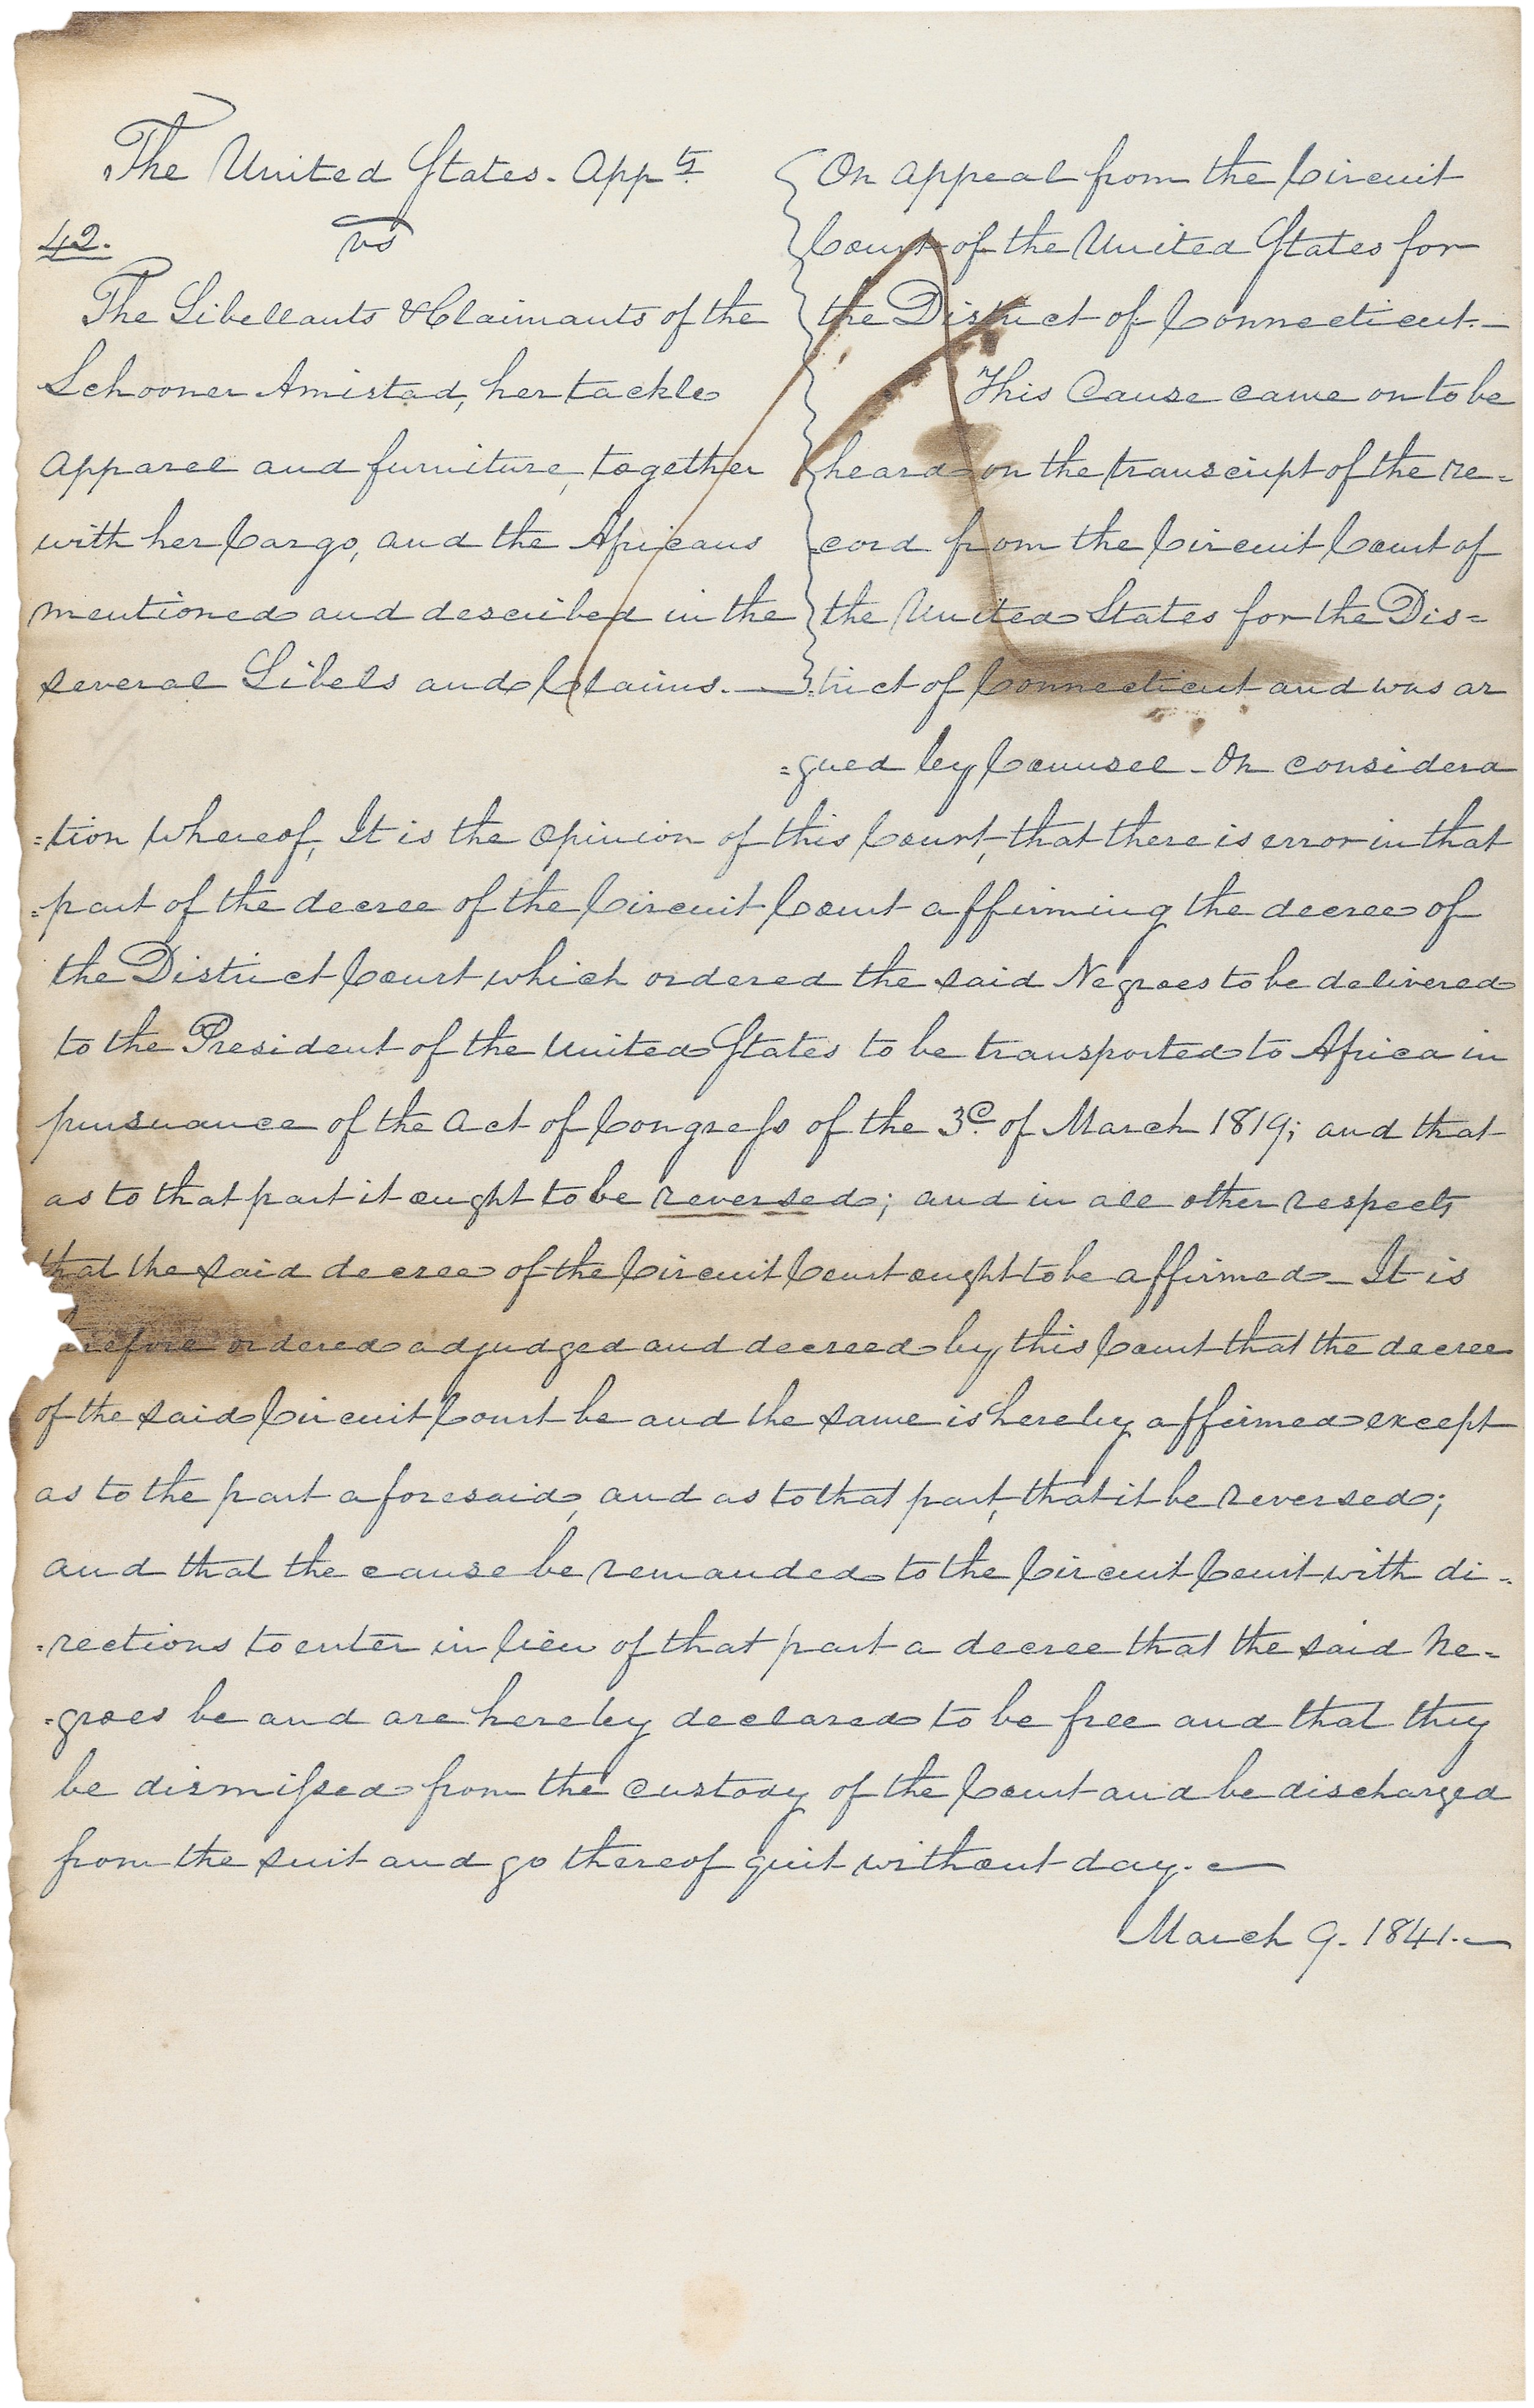 The United States. Appts.
42. vs
The Libellants & Claimants of the
Schooner Amistad, her tackle
apparel and furniture, together
with her Cargo, and the Africans
mentioned and described in the
several Libels and Claims. —
On appeal from the Circuit
Court of the United States for
the District of Connecticut. —
This Cause came on to be
heard on the transcript of the re=
cord from the Circuit Court of
the United States for the Dis=
trict of Connecticut and was ar
=gued by Counsel - On considera
=tion whereof, It is the opinion of this Court, that there is error in that
=part of the decree of the Circuit Court affirming the decree of
the District Court which ordered the said Negroes to be delivered
to the President of the United States to be transported to Africa in
pursuance of the act of Congress of the 3d. of March 1819; and that
as to that part it ought to be reversed; and in all other respects
that the said decree of the Circuit Court ought to be affirmed - It is
ordered adjudged and decreed by this Court that the decree
of the said Circuit Court be and the same is hereby affirmed except
as to the part aforesaid, and as to that part, that it be reversed;
and that the cause be remanded to the Circuit Court with di=
=rections to enter in lieu of that part a decree that the said Ne=
=groes be and are hereby declared to be free and that they
be dismissed from the custody of the Court and be discharged
from the suit and go thereof quit without day. —
March 9. 1841. —